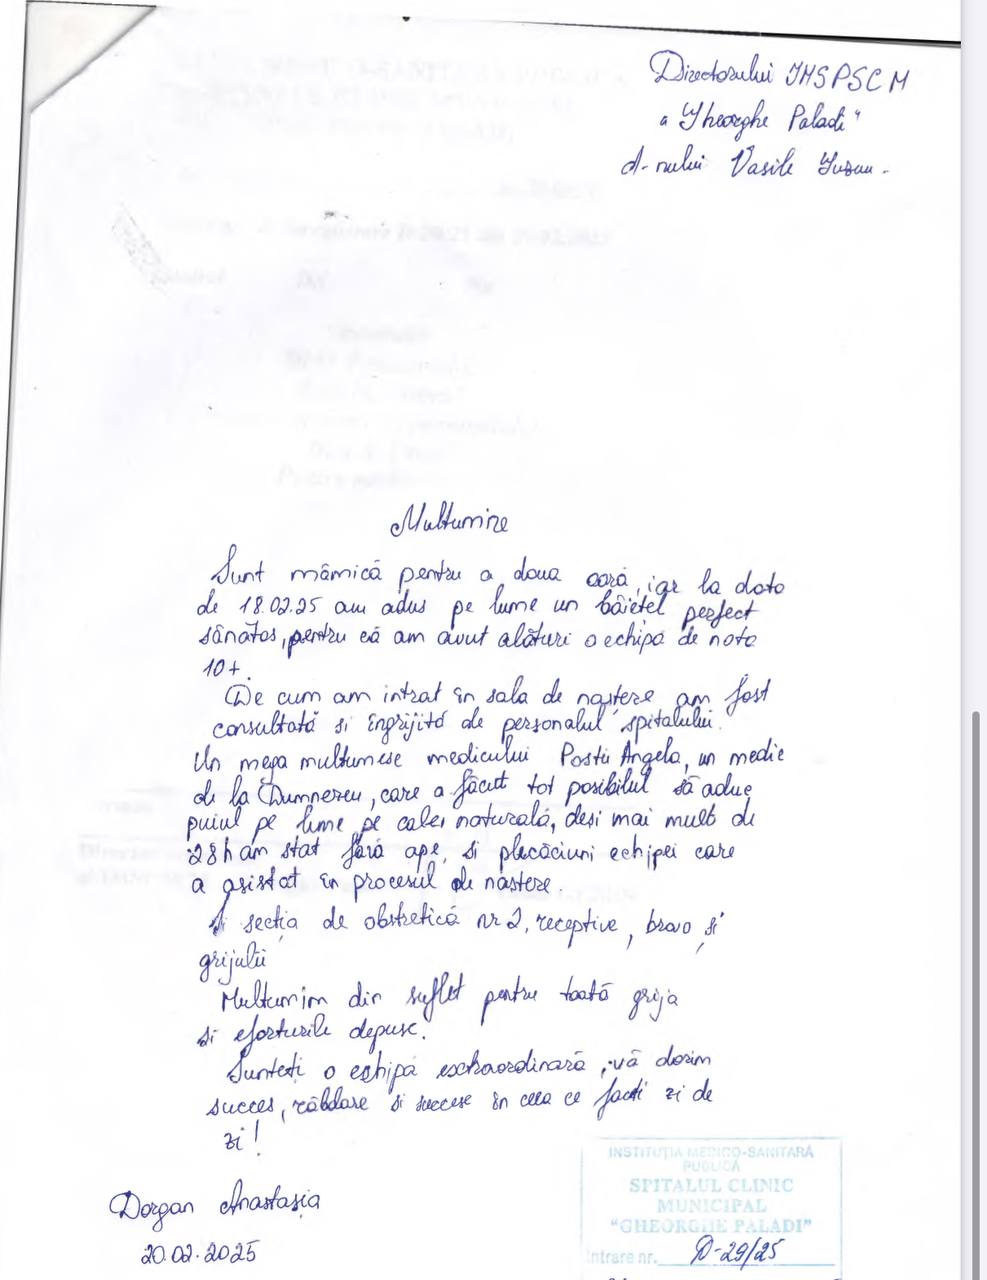 Directorului IMSPSCM
"Gheorghe Paladi"
d-nului Vasile
Multumire
Sunt mămică pentru a doua oară, iar la data
de 18.02.25 am adus pe lume un băiețel perfect
sănătos, pentru că am avut alături o echipă de nota
10+.
De cum am intrat în sala de naștere am fost
consultată și îngrijită de personalul spitalului.
Un mega multumesc medicului Postu Angela, un medic
de la Dumnezeu, care a făcut tot posibilul să aduc
puiul pe lume pe calei naturală, desi mai mult de
28h am stat fără ape, si plecăciuni echipei care
a asistat în procesul de naștere
Și secția de obstretică nr 2, receptive, bravo și
grijulii
Multumim din suflet pentru toată grija
si eforturile depuse.
Sunteți o echipă exchaordinară, vă dorim
succes, răbdare si succese în ceea ce faceti zi de
zi!
Dorgan Anastasia
20.02.2025
INSTITUȚIA MEDICO-SANITARĂ
PUBLICĂ
SPITALUL CLINIC
MUNICIPAL
"GHEORGHE PALADI"
Intrare nr. D-29/25